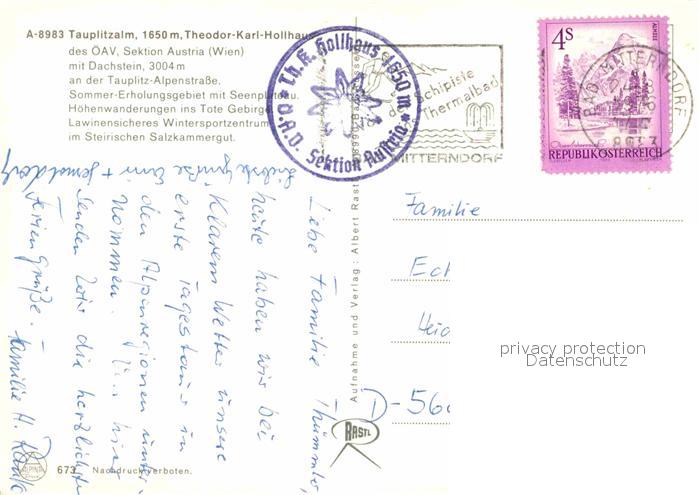 A-8983 Tauplitzalm, 1650 m, Theodor-Karl-Hollhaus
des ÖAV, Sektion Austria (Wien)
mit Dachstein, 3004 m
an der Tauplitz-Alpenstraße.
Sommer-Erholungsgebiet mit Seenplateau.
Höhenwanderungen ins Tote Gebirge
Lawinensicheres Wintersportzentrum
im Steirischen Salzkammergut.
Th. K. Hollhaus 1650 m
Sektion Austria
Schipiste
Thermalbad
MITTERNDORF
4S
REPUBLIK ÖSTERREICH
BAD MITTERNDORF
8983
Liebe Familie Thümmler,
heute haben wir bei
klarem Wetter unsere
erste Tagestour in
den Alpenregionen unter-
nommen. Von hier
senden wir die herzlichsten
Feriengrüße.
Familie H.
Liebste Grüße
Aufnahme und Verlag: Albert Rastl
Familie
Ec
D-56
RASTL
privacy protection
Datenschutz
673 Nachdruck verboten.